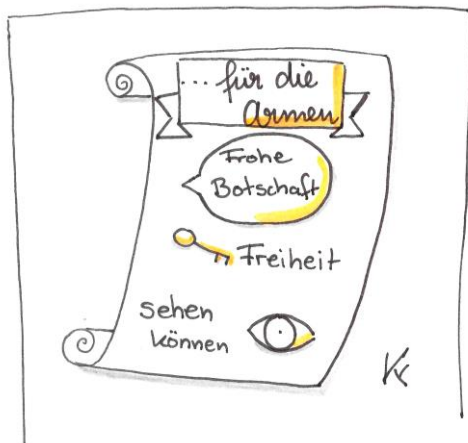 ... für die
Armen
Frohe
Botschaft
Freiheit
sehen
können